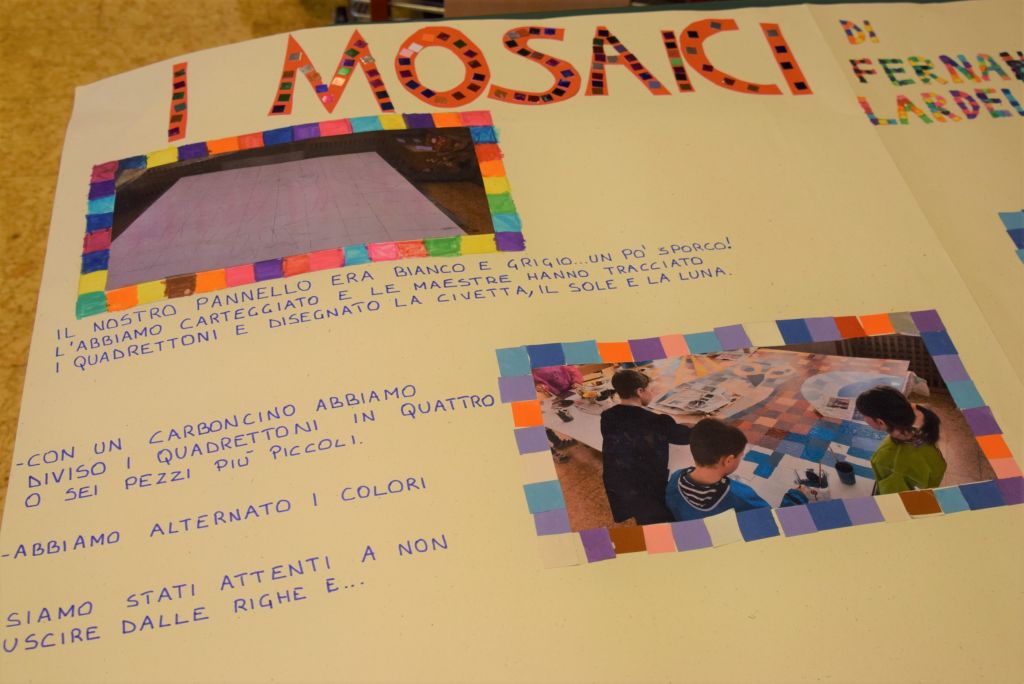 I MOSAICI
DI
IL NOSTRO PANNELLO ERA BIANCO E GRIGIO...UN PO' SPORCO!
L'ABBIAMO CARTEGGIATO E LE MAESTRE HANNO TRACCIATO
I QUADRETTONI E DISEGNATO LA CIVETTA, IL SOLE E LA LUNA.
-CON UN CARBONCINO ABBIAMO
DIVISO I QUADRETTONI IN QUATTRO
O SEI PEZZI PIÙ PICCOLI.
-ABBIAMO ALTERNATO I COLORI
SIAMO STATI ATTENTI A NON
USCIRE DALLE RIGHE E...